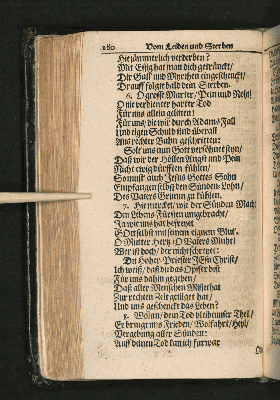 180 Vom Leiden und Sterben
Hie jämmerlich verderben?
Mit Essig hat man dich getränckt/
Dir Gall und Myrrhen eingeschenckt/
Drauff folgte bald dein Sterben.
6. O grosse Marter/ Pein und Noht/
O nie verdienter harter Tod
Für uns allein gelitten!
Für uns/ die wir durch Adams Fall
Und eigen Schuld sind überall
Aus rechter Bahn geschritten:
Solt uns nun Gott versöhnet seyn/
Daß wir der Höllen Angst und Pein
Nicht ewig dürfften fühlen/
So must auch Jesus Gottes Sohn
Empfangen selbst den Sünden-Lohn/
Des Vaters Grimm zu kühlen.
7. Hie mercket/ wie der Sünden Macht
Den Lebens-Fürsten umgebracht/
Ja wie uns hat befreyet
Gott selbst mit seinem eignen Blut.
O Mutter Hertz/ O Vaters Muht!
Wer ist doch/ der nicht schreyet:
Du Hoher-Priester JEsu Christ/
Ich weiß/ daß du das Opfer bist
Für uns dahin gegeben/
Daß aller Menschen Missethat
Zur rechten Zeit getilget hat/
Und uns geschenckt das Leben?
8. Wolan/ dein Tod bleibt unser Theil/
Er bringt uns Frieden/ Wolfahrt/ Heyl/
Vergebung aller Sünden:
Auff deinen Tod kan ich fürwar